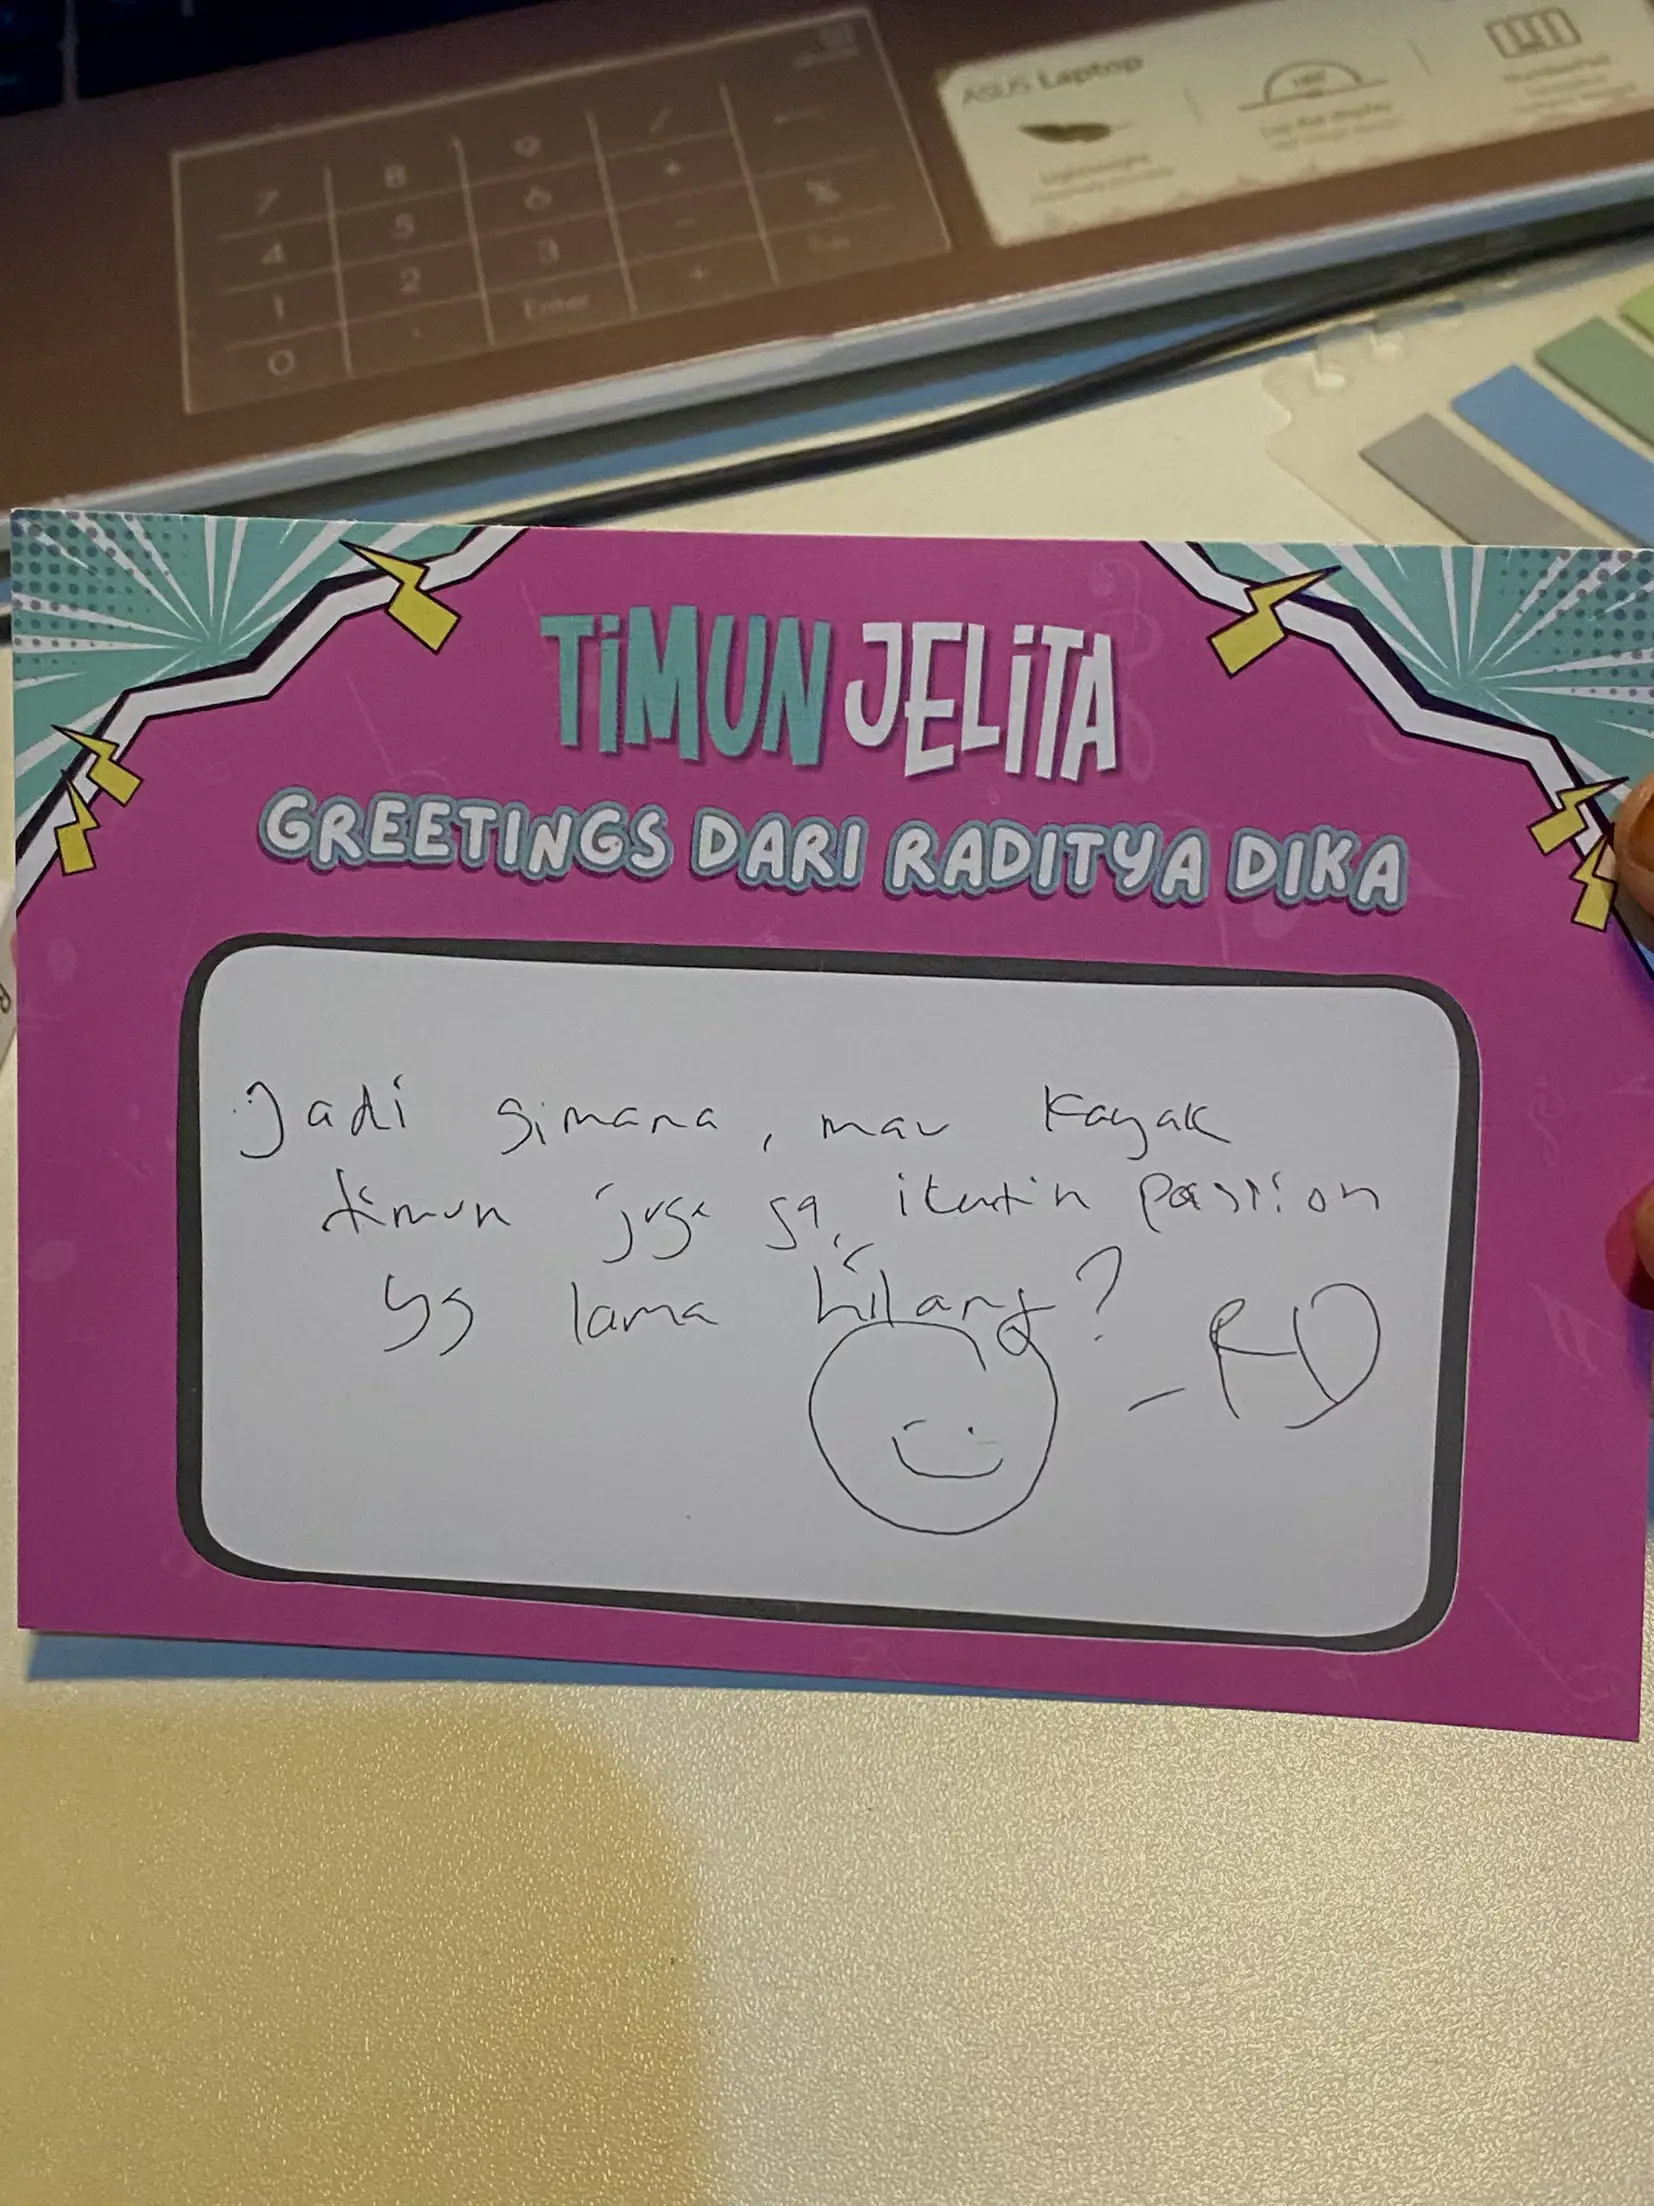 7 8 9 /
4 5 6 × %
1 2 3 -
0 . Enter +
ASUS Laptop
Lightweight
TiMUN JELiTA
GREETINGS DARI RADITYA DIKA
Jadi gimana, mau kayak
timun juga ga, ikutin passion
yg lama hilang?
- RD